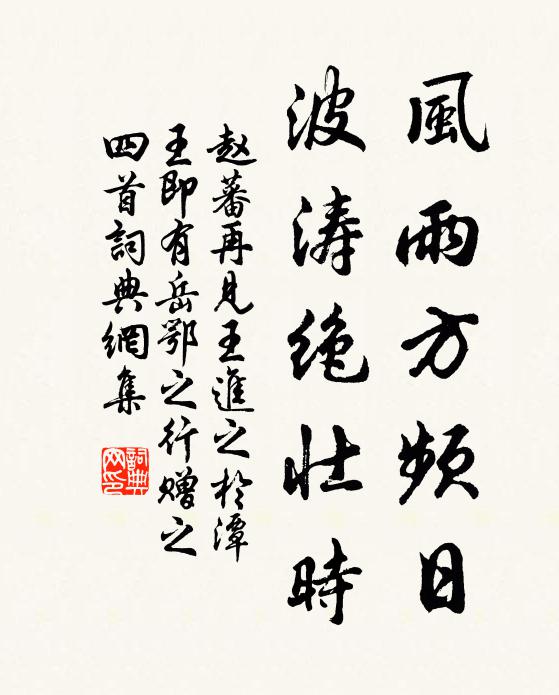 風雨方頻日
波涛絶壮時
赵蕃再見王進之於潭
王即有岳鄂之行赠之
四首詞典網集
詞典网印